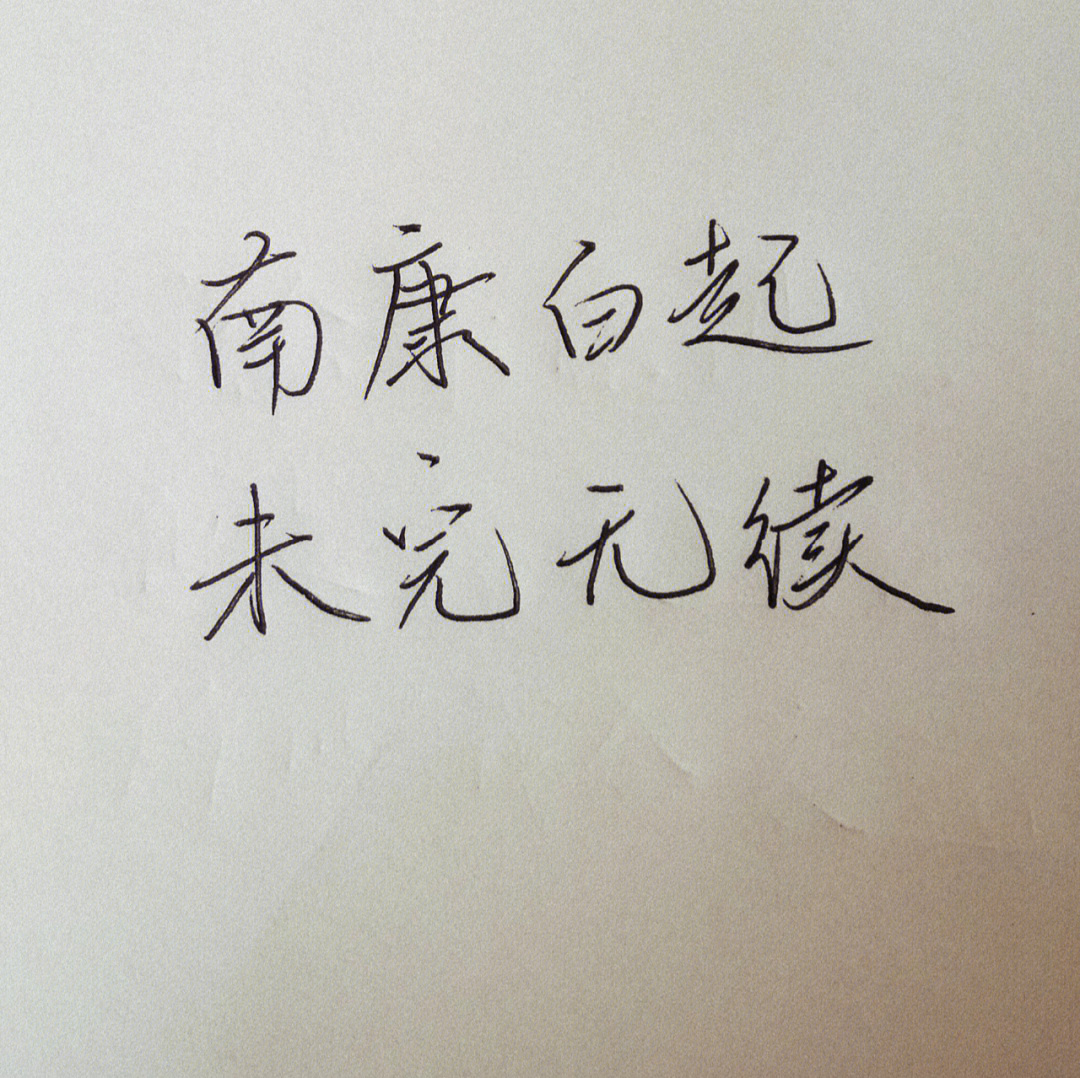 南康白起
未完无续